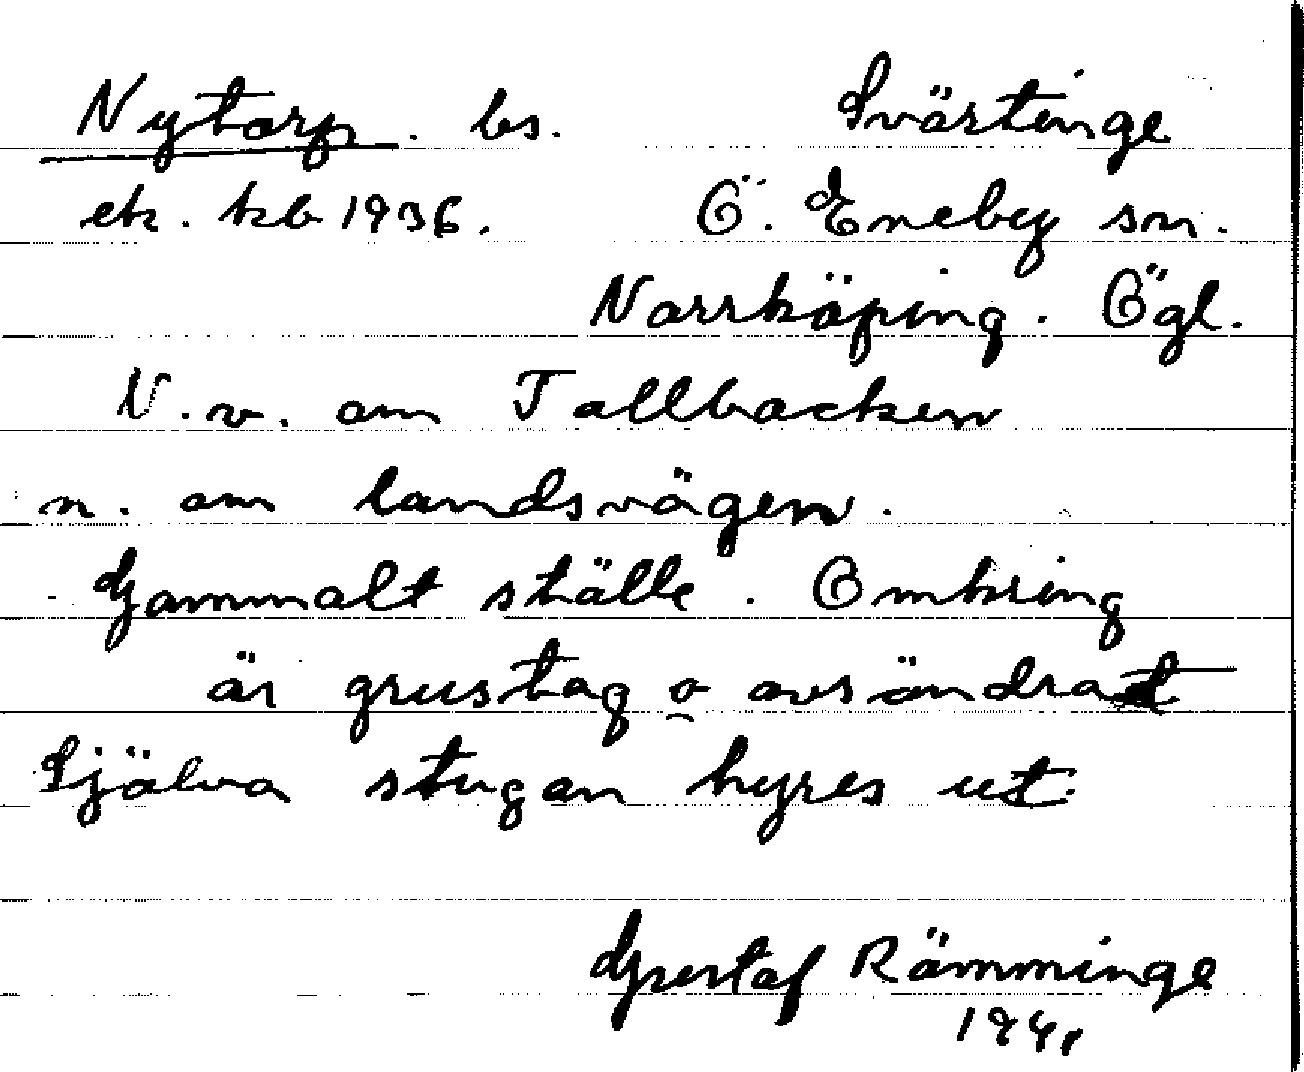 Nytorp. bs. Svärtinge
ek. kb 1936. Ö. Eneby sn.
Norrköping. Ögl.
N.v. om Tallbacken
n. om landsvägen.
Gammalt ställe. Omkring
är grustag o avsöndrat
Själva stugan hyres ut.
Gustaf Rämminge
1941